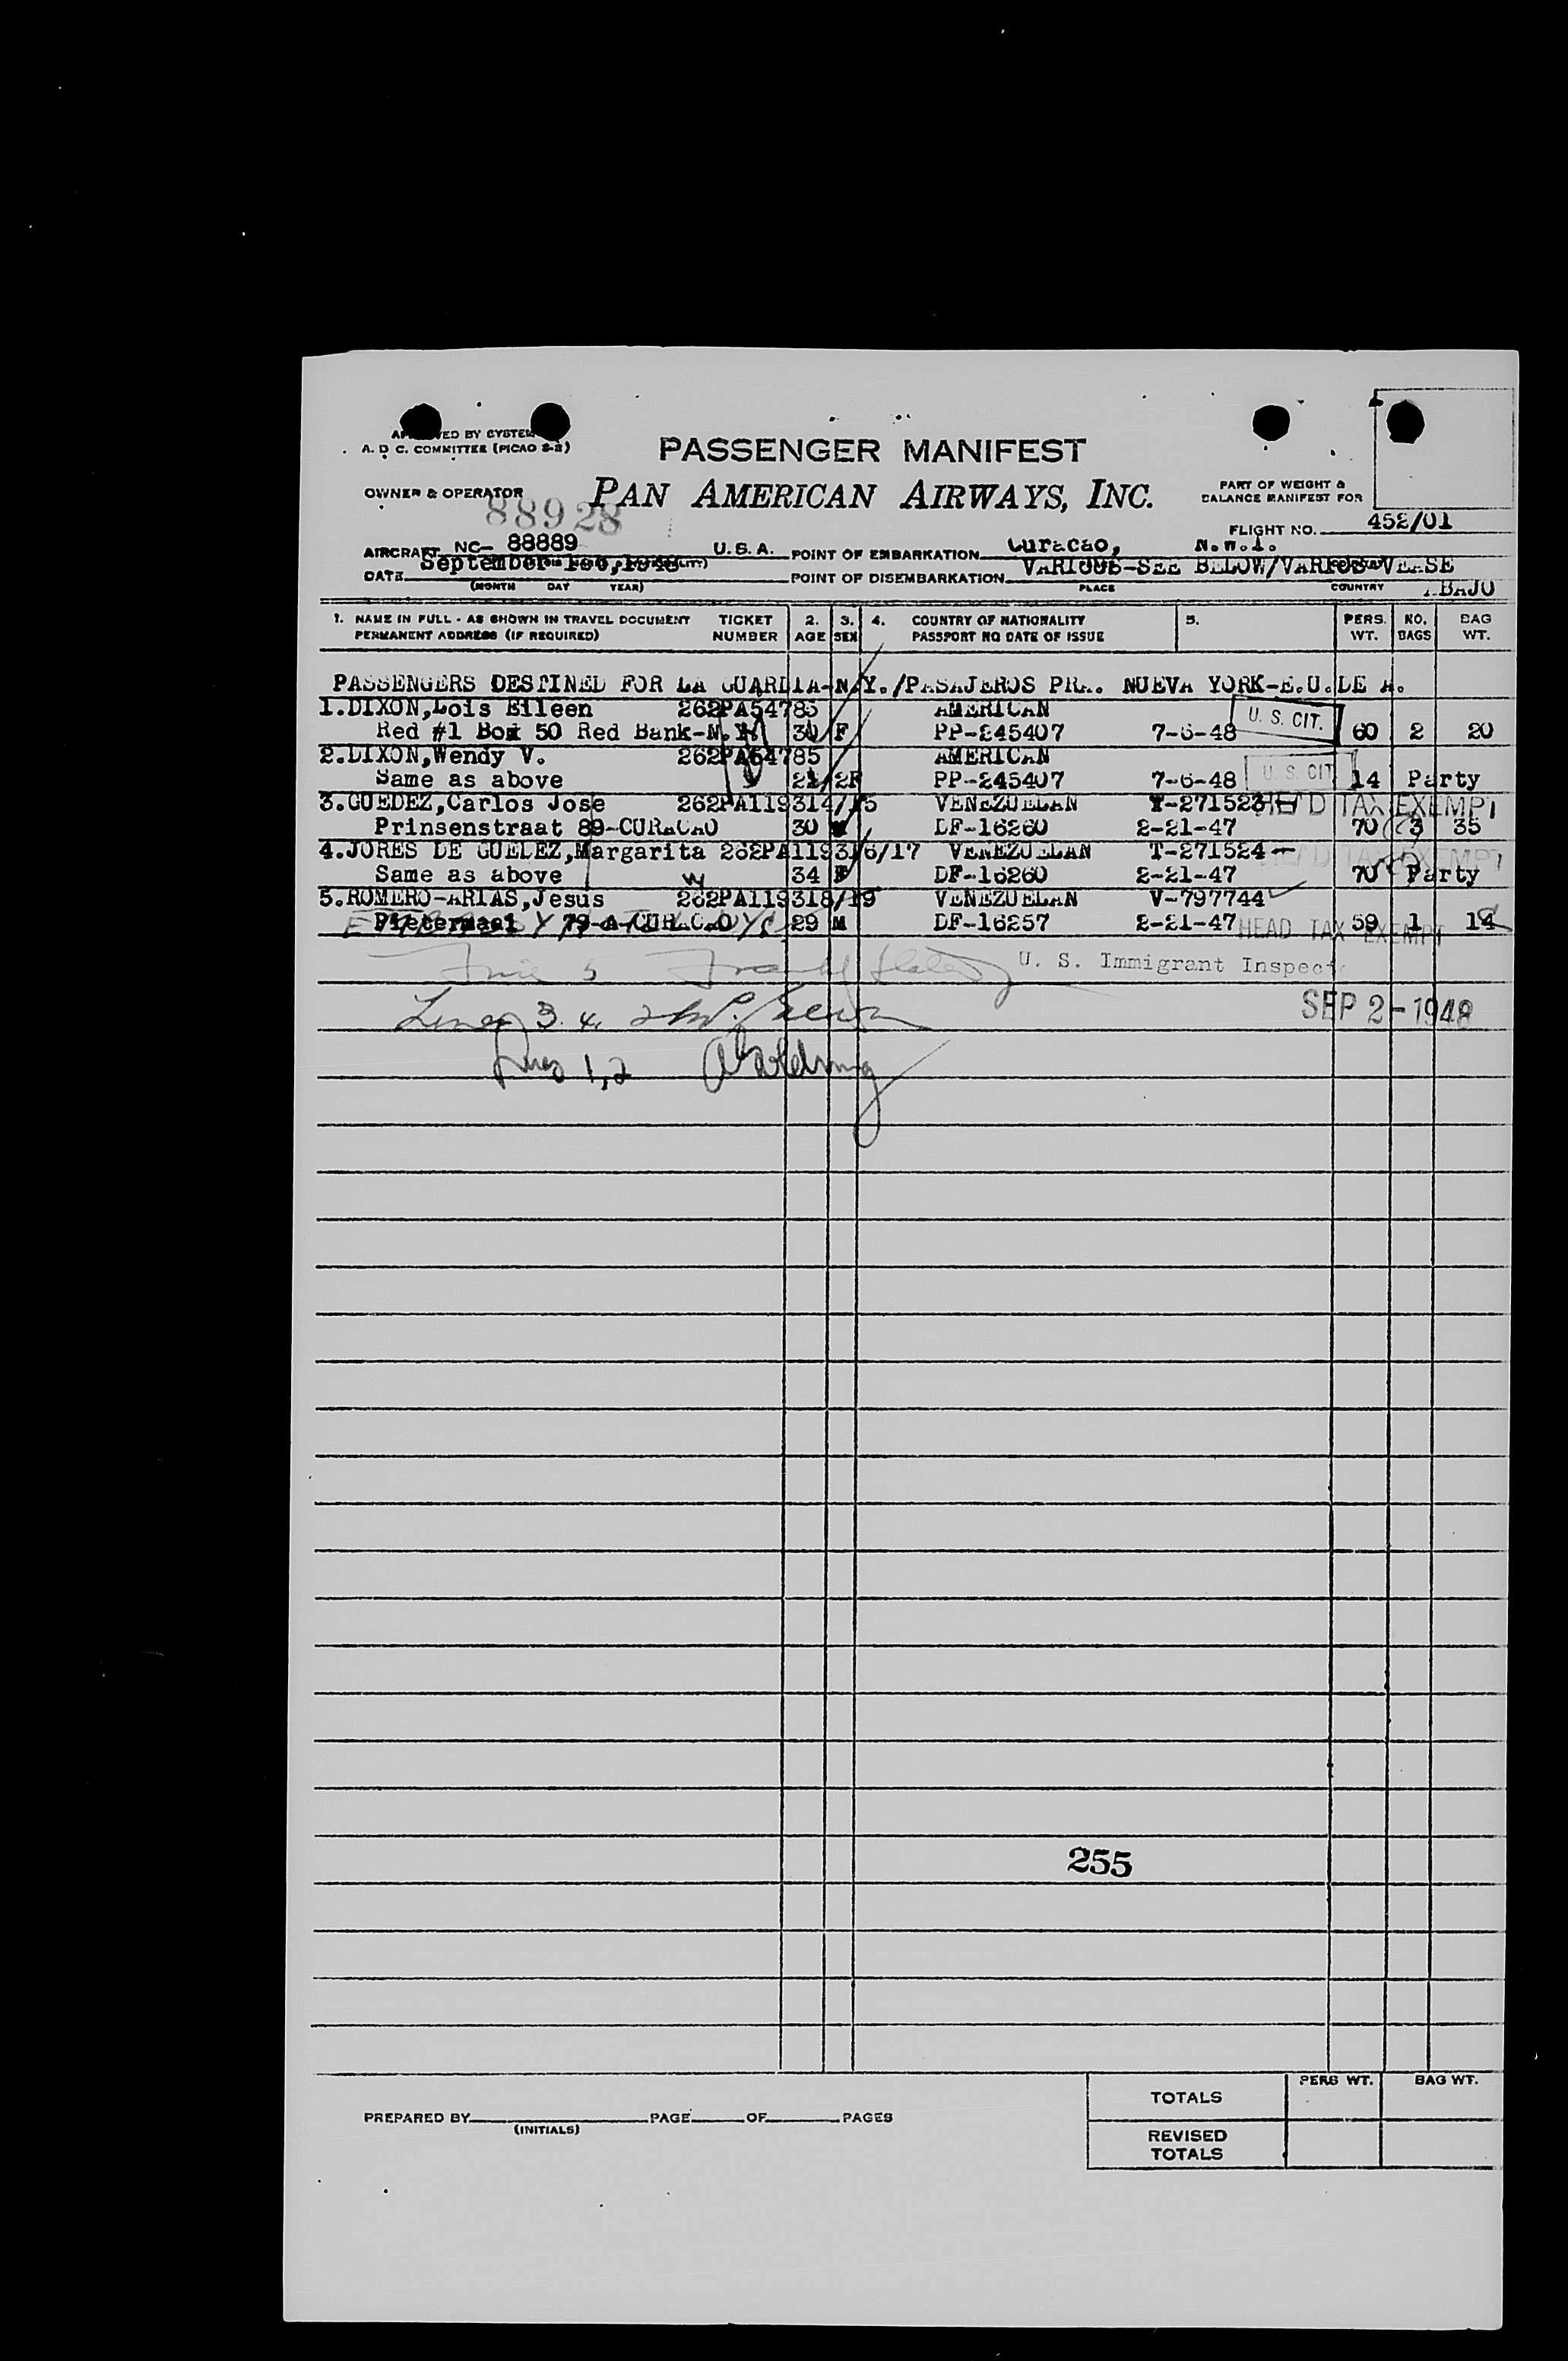 APPROVED BY SYSTEM
A. D C. COMMITTEE (PICAO 2-2)
PASSENGER MANIFEST
OWNER & OPERATOR
PAN AMERICAN AIRWAYS, INC.
PART OF WEIGHT &
BALANCE MANIFEST FOR
88928
FLIGHT NO. 452/01
AIRCRAFT NC- 88889 U. S. A. POINT OF EMBARKATION Curacao, N.W.I.
DATE September 1948 POINT OF DISEMBARKATION VARIOUS-SEE BELOW/VARIOS-VEASE
(MONTH DAY YEAR) PLACE COUNTRY ABAJO
1. NAME IN FULL - AS SHOWN IN TRAVEL DOCUMENT TICKET 2. 3. 4. COUNTRY OF NATIONALITY 5. PERS. NO. BAG
PERMANENT ADDRESS (IF REQUIRED) NUMBER AGE SEX PASSPORT NO DATE OF ISSUE WT. BAGS WT.
PASSENGERS DESTINED FOR LA GUARDIA-N.Y./PASAJEROS PRA. NUEVA YORK-E.U.DE A.
1.DIXON,Lois Eileen 262PA54785 AMERICAN
Red #1 Box 50 Red Bank-N. F PP-245407 7-6-48 U. S. CIT. 60 2 20
2.DIXON,Wendy V. 262PA54785 AMERICAN
Same as above PP-245407 7-6-48 U. S. CIT 14 Party
3.GUEDEZ,Carlos Jose 262PA119314/15 VENEZUELAN T-271523 HEAD TAX EXEMPT
Prinsenstraat 89-CURACAO 30 M DF-16260 2-21-47 70 3 35
4.JORES DE GUEDEZ,Margarita 262PA119316/17 VENEZUELAN T-271524 HEAD TAX EXEMPT
Same as above 34 F DF-16260 2-21-47 70 Party
5.ROMERO-ARIAS,Jesus 262PA119318/19 VENEZUELAN V-797744
Pietermaai 79-A-CURACAO 29 M DF-16257 2-21-47 HEAD TAX EXEMPT 59 1 14
5 U. S. Immigrant Inspect
Lines 3. 4. SEP 2-1948
Lines 1,2 A Goldring
255
TOTALS PERS WT. BAG WT.
PREPARED BY PAGE OF PAGES
(INITIALS)
REVISED
TOTALS